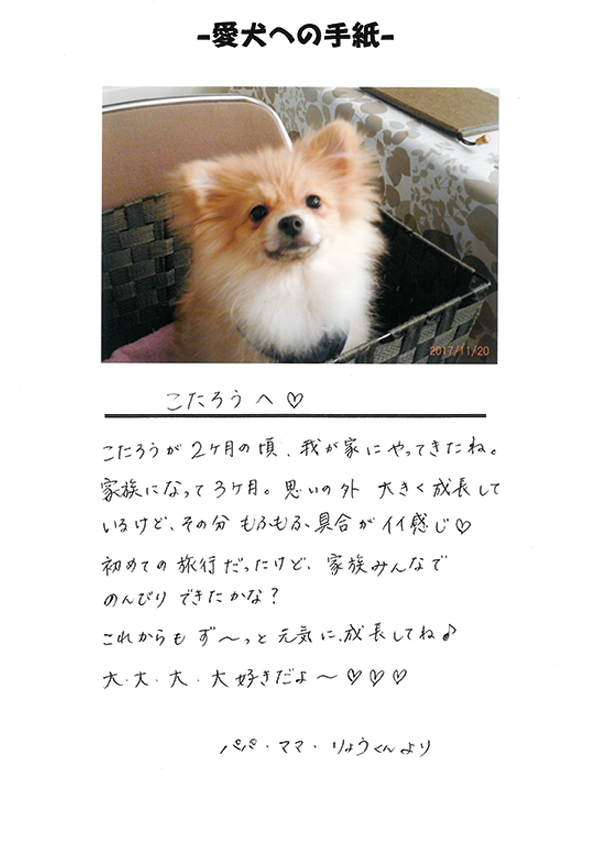 -愛犬への手紙-
2017/11/20
こたろうへ♡
こたろうが2ヶ月の頃、我が家にやってきたね。
家族になって3ヶ月。思いの外 大きく成長して
いるけど、その分 もふもふ具合がイイ感じ♡
初めての旅行だったけど、家族みんなで
のんびりできたかな?
これからも ず〜っと元気に、成長してね♪
大・大・大・大好きだよ〜♡♡♡
パパ・ママ・りょうくんより